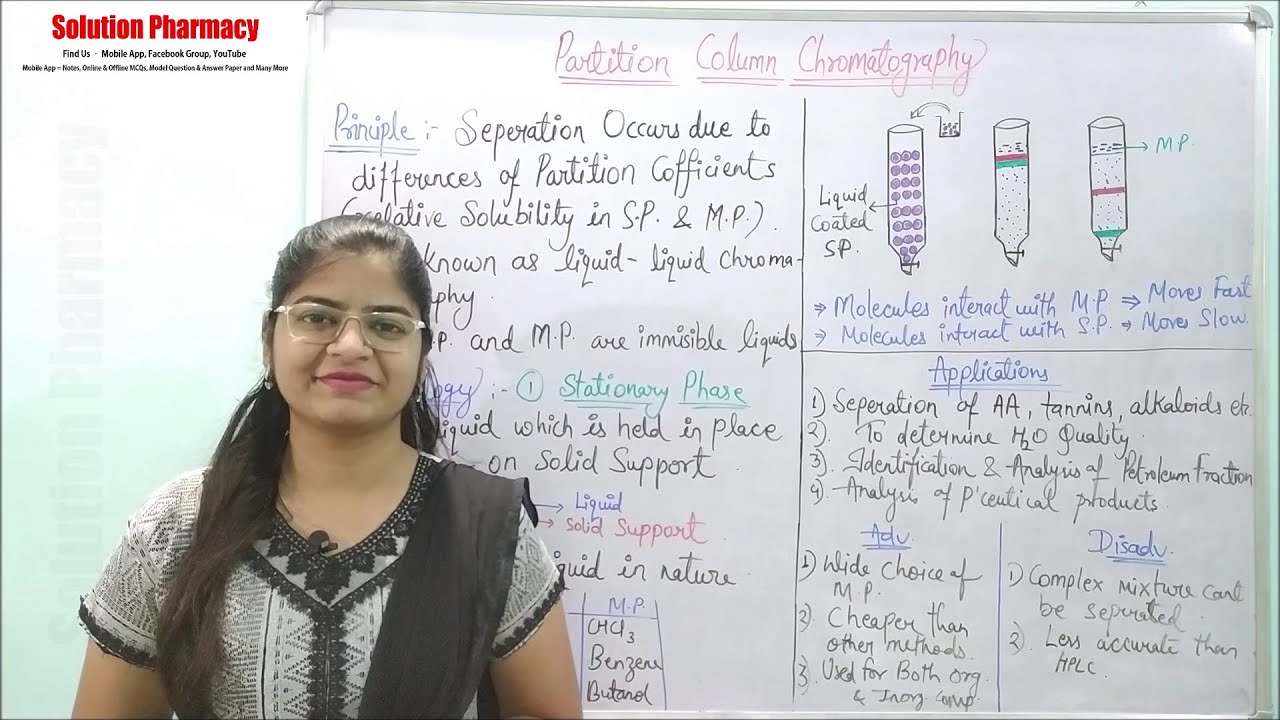 Solution Pharmacy
Find Us - Mobile App, Facebook Group, YouTube
Mobile App = Notes, Online & Offline MCQs, Model Question & Answer Paper and Many More
Solution Pharmacy
Partition Column Chromatography
Principle :- Seperation Occurs due to
differences of Partition Cofficients
(relative Solubility in S.P. & M.P.)
known as liquid-liquid chroma-
phy.
.P. and M.P. are immisible liquids
ogy :- ① Stationary Phase
liquid which is held in place
on Solid Support.
→ Liquid
→ Solid Support
liquid in nature.
M.P.
CHCl3
Benzene
Butanol
Liquid
Coated
S.P.
→ M.P.
⇒ Molecules interact with M.P ⇒ Moves Fast
⇒ Molecules interact with S.P. → Moves Slow.
Applications
1) Seperation of AA, tannins, alkaloids etc.
2). To determine H2O Quality.
3). Identification & Analysis of Petroleum Fraction
4). Analysis of P'ceutical products.
Adv.
1) Wide Choice of
M.P.
2) Cheaper than
other methods.
3). Used for Both org.
& Inorg. comp.
Disadv.
1) Complex mixture cant
be seperated.
2). Less accurate than
HPLC.